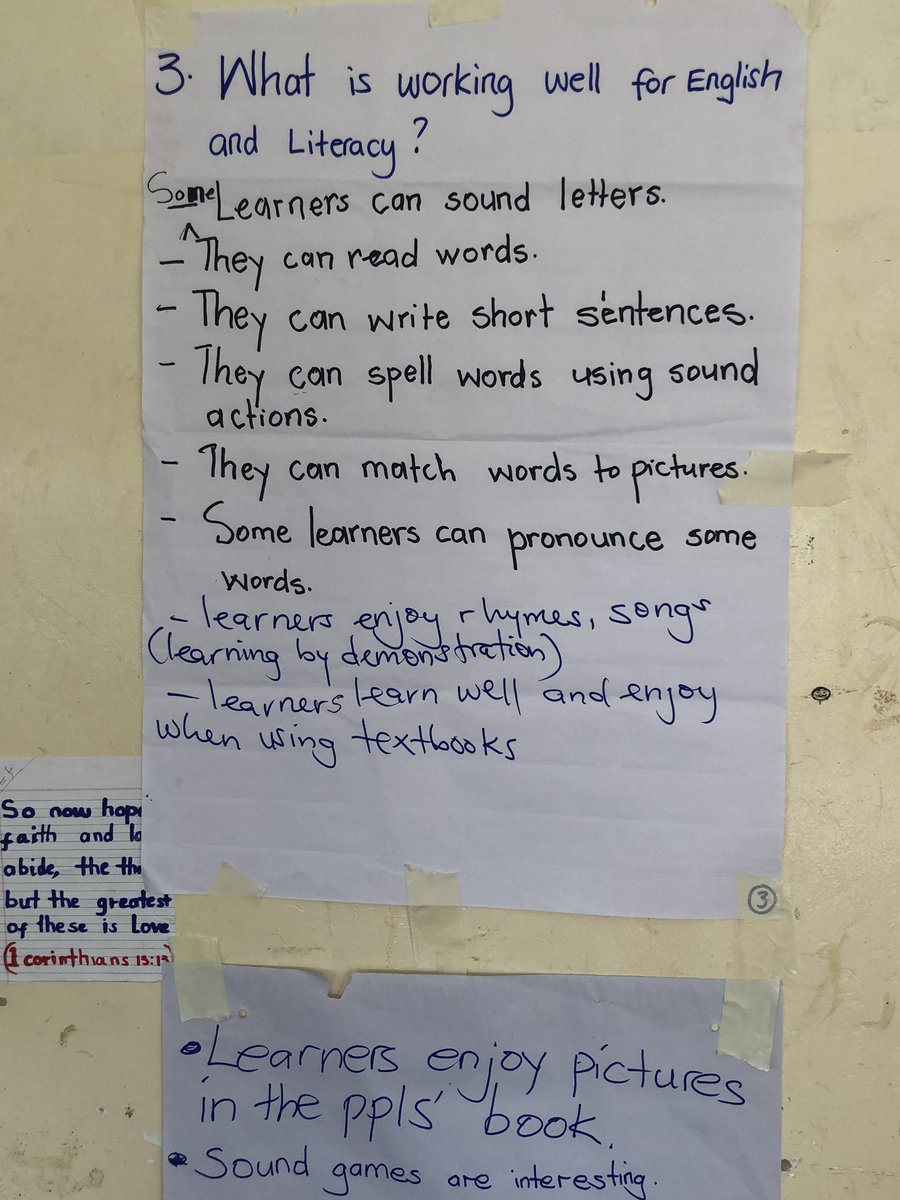 3. What is working well for English
and Literacy?
Some Learners can sound letters.
- They can read words.
- They can write short sentences.
- They can spell words using sound
actions.
- They can match words to pictures.
- Some learners can pronounce some
words.
- learners enjoy rhymes, songs
(learning by demonstration)
- learners learn well and enjoy
when using textbooks
3
So now hop
faith and lo
abide, the th
but the greatest
of these is Love
(1 corinthians 13:13)
• Learners enjoy pictures
in the ppls' book.
• Sound games are interesting.